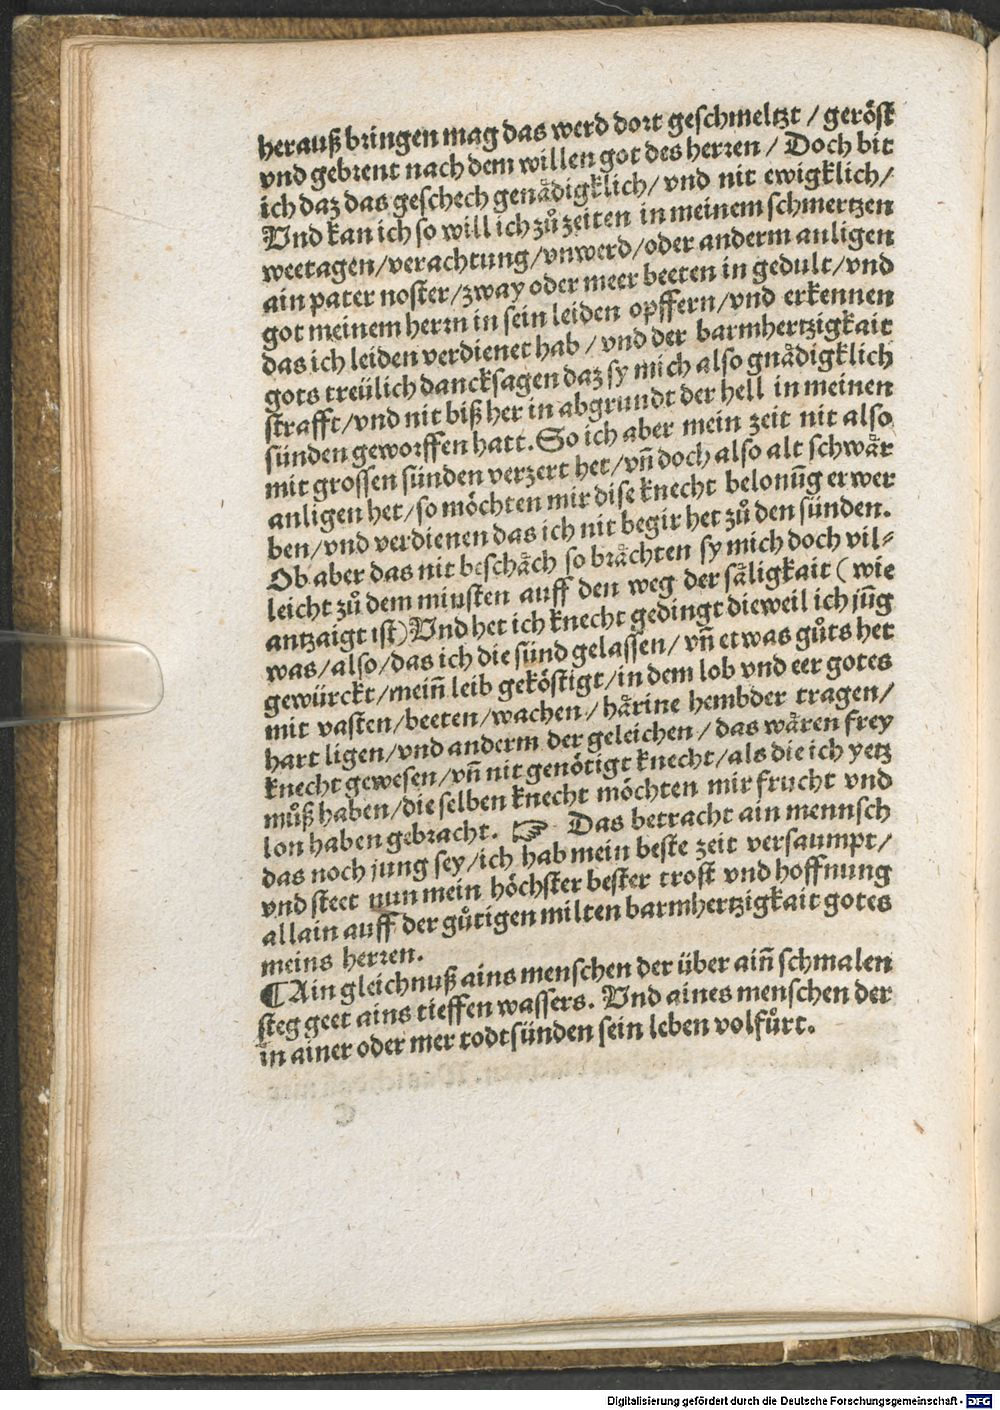 herauß bringen mag das werd dort geschmeltzt / geröst
vnd gebrent nach dem willen got des herren / Doch bit
ich daz das geschech genädigklich / vnd nit ewigklich /
Vnd kan ich so will ich zuͦ zeiten in meinem schmertzen
weetagen / verachtung / vnwerd / oder anderm anligen
ain pater noster / zway oder meer beeten in gedult / vnd
got meinem herrn in sein leiden opffern / vnd erkennen
das ich leiden verdienet hab / vnd der barmhertzigkait
gots treülich dancksagen daz sy mich also gnaͤdigklich
strafft / vnd nit biß her in abgrundt der hell in meinen
sünden geworffen hatt. So ich aber mein zeit nit also
mit grossen sünden verzert het / vñ doch also alt schwaͤr
anligen het / so möchten mir dise knecht belonūg erwer
ben / vnd verdienen das ich nit begir het zuͦ den sünden.
Ob aber das nit beschaͤch so braͤchten sy mich doch vil⸗
leicht zuͦ dem minsten auff den weg der saͤligkait ( wie
antzaigt ist) Vnd het ich knecht gedingt dieweil ich jūg
was / also / das ich die sünd gelassen / vñ etwas guͦts het
gewürckt / meiñ leib geköstigt / in dem lob vnd eer gotes
mit vasten / beeten / wachen / haͤrine hembder tragen /
hart ligen / vnd anderm der geleichen / das waͤren frey
knecht gewesen / vñ nit genötigt knecht / als die ich yetz
muͦß haben / die selben knecht möchten mir frucht vnd
lon haben gebracht. ☞ Das betracht ain mennsch
das noch jung sey / ich hab mein beste zeit versaumpt /
vnd steet nun mein höchster bester trost vnd hoffnung
allain auff der guͤtigen milten barmhertzigkait gotes
meins herren.
¶ Ain gleichnuß ains menschen der über aiñ schmalen
steg geet ains tieffen wassers. Vnd aines menschen der
in ainer oder mer todtsünden sein leben volfuͤrt.
Digitalisierung gefördert durch die Deutsche Forschungsgemeinschaft - DFG